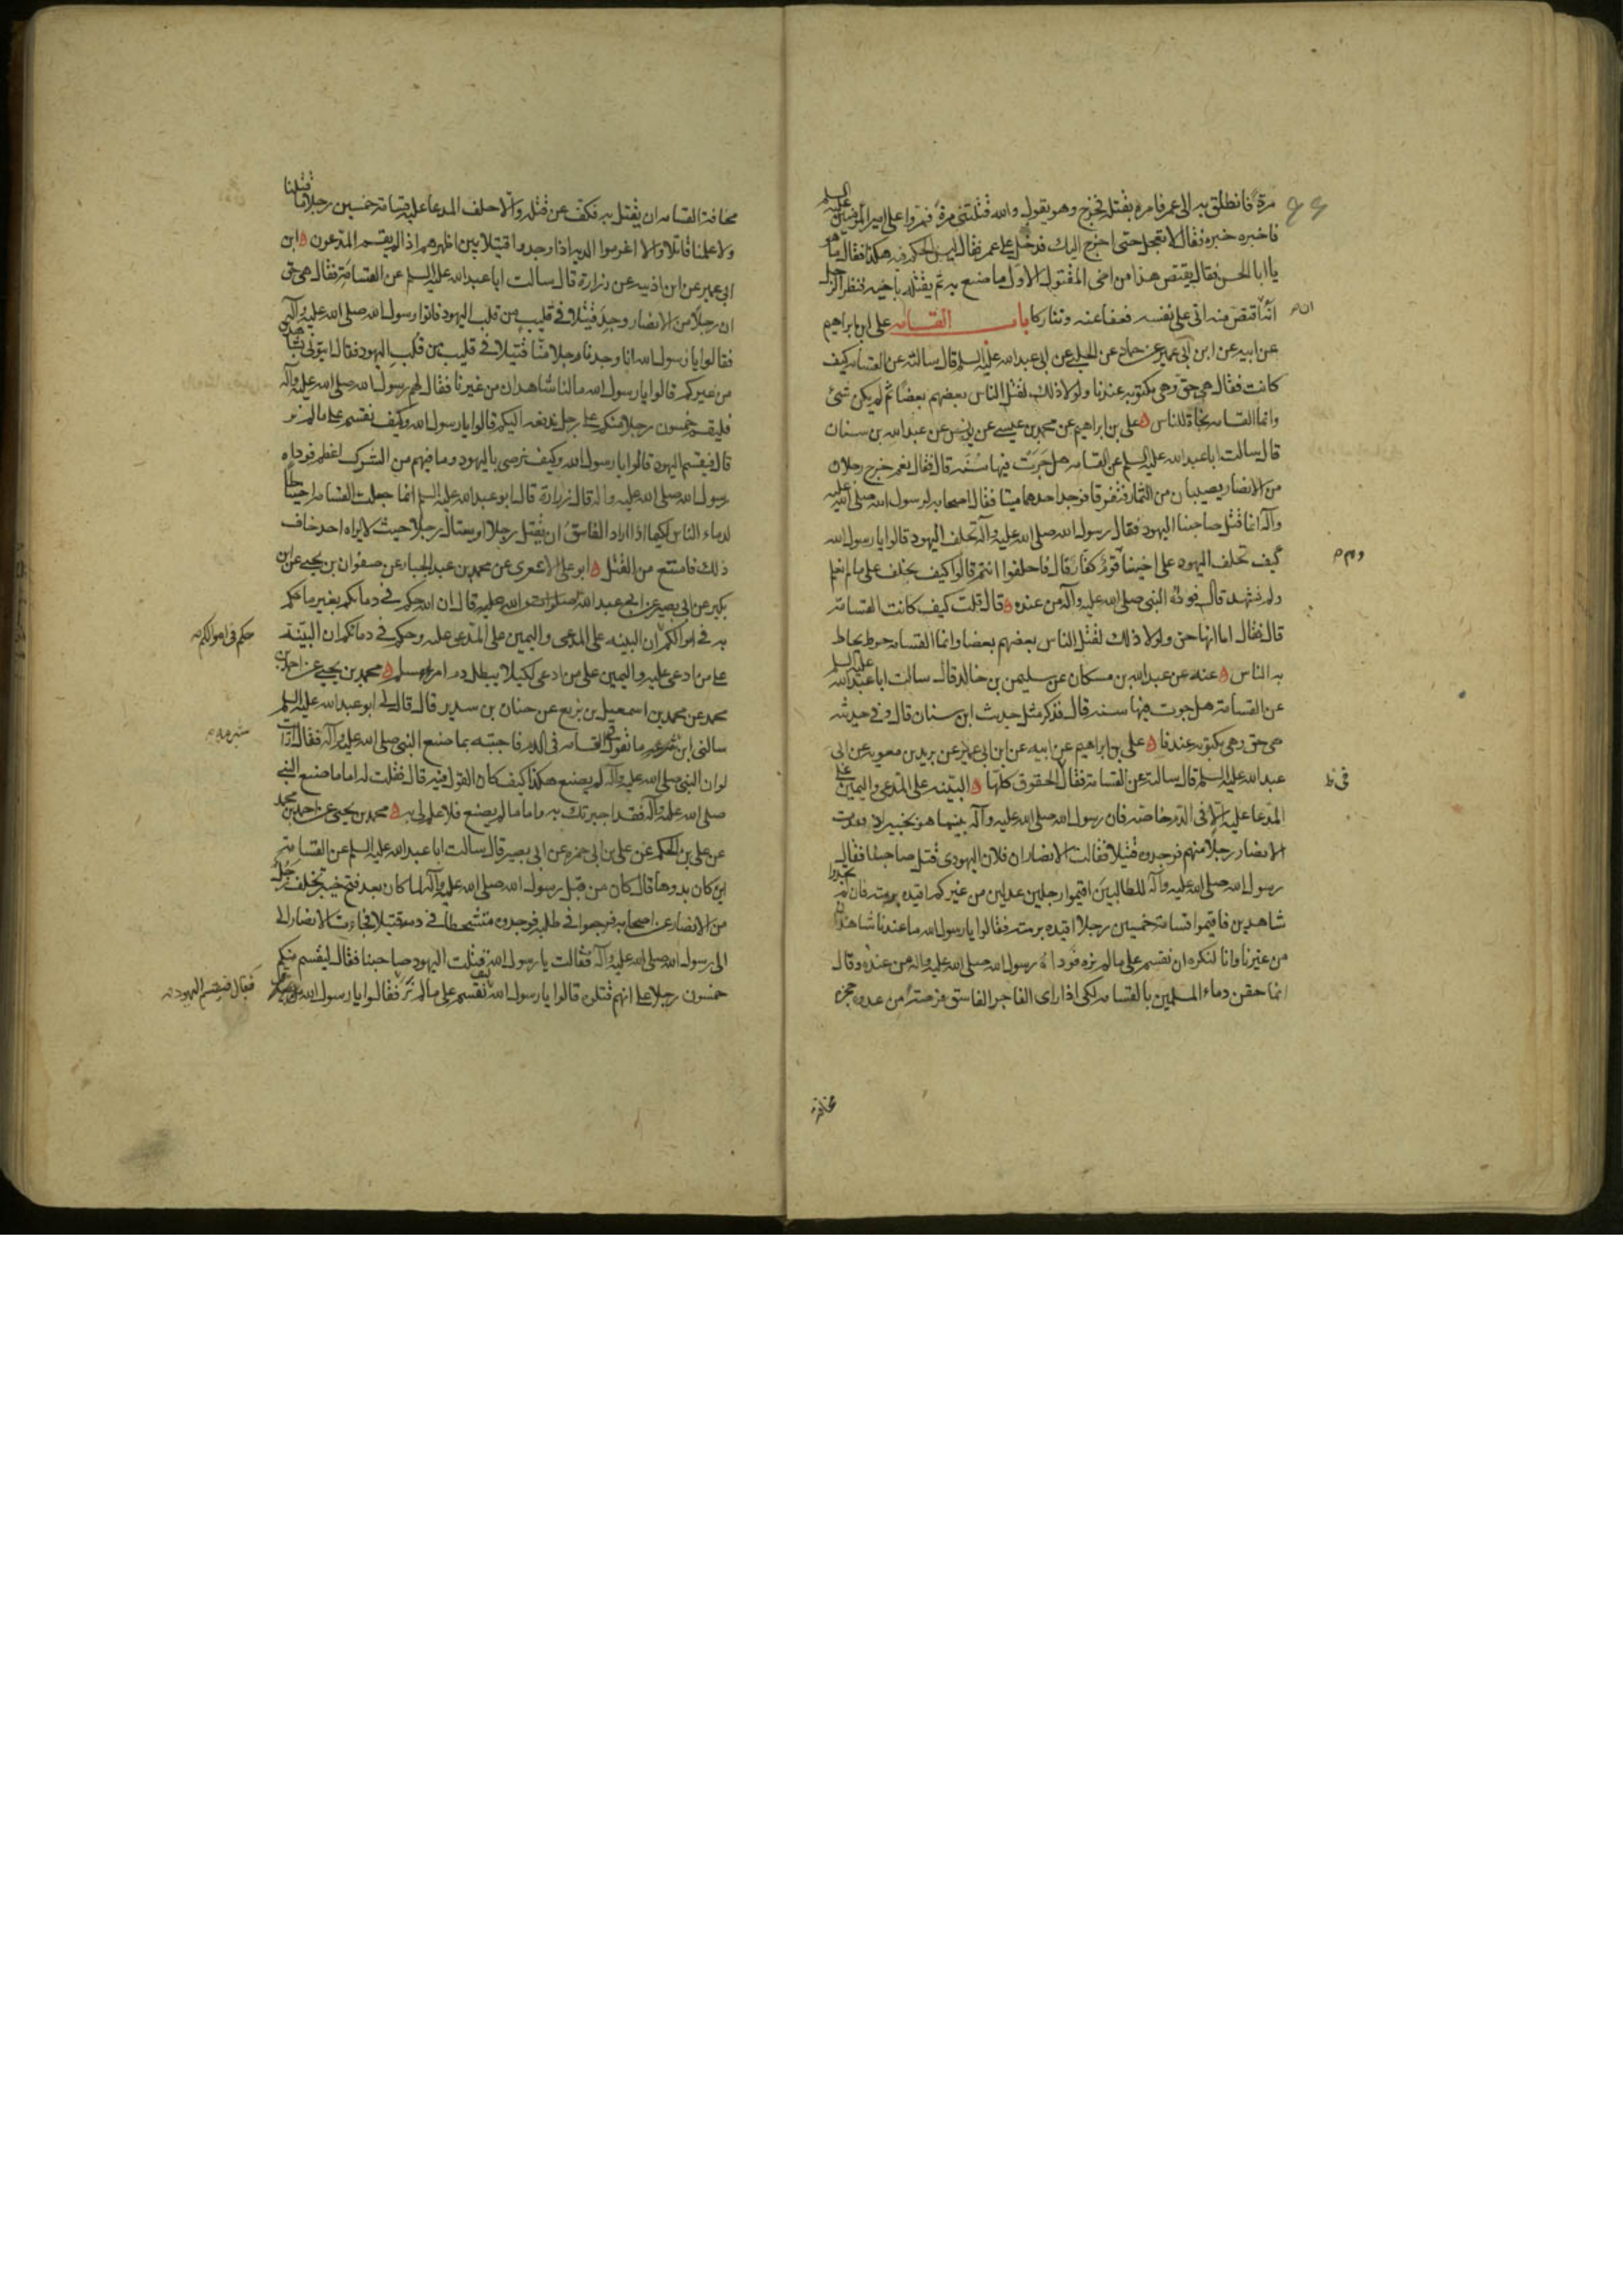 مرة فانطلق به الى عمر فامره بقتله فخرج وهو يقول والله قتلتنى مرة فمروا على امير المؤمنين عليه السلم
فاخبره خبره فقال لا تعجل حتى اخرج اليك فدخل على عمر فقال ليس الحكم فيه هكذا فقال ما هو
يا ابا الحسن فقال يقتص هذا من اخى المقتول الاول ما صنع به ثم يقتله باخيه فنظر الرجل
انه اقتص منه اتى على نفسه فعفا عنه وتتاركا باب القسامه على بن ابراهيم
عن ابيه عن ابن ابى عمير عن حماد عن الحلبى عن ابى عبد الله عليه السلم قال سالته عن القسامه كيف
كانت فقال هى حق وهى مكتوبه عندنا ولولا ذلك لقتل الناس بعضهم بعضا ثم لم يكن شئ
وانما القسامه نجاة للناس ه على بن ابراهيم عن محمد بن عيسى عن يونس عن عبد الله بن سنان
قال سالت ابا عبد الله عليه السلم عن القسامه هل جرت فيها سنه قال فقال نعم خرج رجلان
من الانصار يصيبان من الثمار فتفرقا فوجد احدهما ميتا فقال اصحابه لرسول الله صلى الله عليه
وآله انما قتل صاحبنا اليهود فقال رسول الله صلى الله عليه وآله تحلف اليهود قالوا يا رسول الله
كيف تحلف اليهود على اخينا قوم كفار قال فاحلفوا انتم قالوا كيف نحلف على ما لم نعلم
ولم نشهد قال فوداه النبى صلى الله عليه وآله من عنده ه قال قلت كيف كانت القسامة
قال فقال اما انها حق ولولا ذلك لقتل الناس بعضهم بعضا وانما القسامه حوط يحاط
به الناس ه عنه عن عبد الله بن مسكان عن سليمن بن خالد قال سالت ابا عبد الله عليه السلم
عن القسامة هل جرت فيها سنه قال فذكر مثل حديث ابن سنان قال وفى حديثه
هى حق وهى مكتوبه عندنا ه على بن ابراهيم عن ابيه عن ابن ابى عمير عن بريد بن معويه عن ابى
عبد الله عليه السلم قال سالته عن القسامة فقال الحقوق كلها ه البينه على المدعى واليمين على
المدعا عليه الا فى الدم خاصه فان رسول الله صلى الله عليه وآله بينما هو بخيبر اذ فقدت
الانصار رجلا منهم فوجدوه قتيلا فقالت الانصار ان فلان اليهودى قتل صاحبنا فقال
رسول الله صلى الله عليه وآله للطالبين اقيموا رجلين عدلين من غيركم اقيده برمته فان لم تجدوا
شاهدين فاقيموا قسامة خمسين رجلا اقيده برمته فقالوا يا رسول الله ما عندنا شاهدان
من غيرنا وانا لنكره ان نقسم على ما لم نره فوداه رسول الله صلى الله عليه وآله من عنده وقال
انما حقن دماء المسلمين بالقسامه لكى اذا راى الفاجر الفاسق فرصة من عدوه حجزه
مخافة
مخافة القسامه ان يقتل به فكف عن قتله والا حلف المدعا عليه قسامة خمسين رجلا ما قتلنا
ولا علمنا قاتلا والا اغرموا الديه اذا وجدوا قتيلا بين اظهرهم اذا لم يقسم المدعون ه ابن
ابى عمير عن ابن اذينه عن زرارة قال سالت ابا عبد الله عليه السلم عن القسامة فقال هى حق
ان رجلا من الانصار وجد قتيلا فى قليب من قلب اليهود فاتوا رسول الله صلى الله عليه وآله
فقالوا يا رسول الله انا وجدنا رجلا منا قتيلا فى قليب من قلب اليهود فقال ايتونى بشاهدين
من غيركم قالوا يا رسول الله مالنا شاهدان من غيرنا فقال لهم رسول الله صلى الله عليه وآله
فليقسم خمسون رجلا منكم على رجل ندفعه اليكم قالوا يا رسول الله وكيف نقسم على ما لم نر
قال فيقسم اليهود قالوا يا رسول الله وكيف نرضى باليهود وما فيهم من الشرك اعظم فوداه
رسول الله صلى الله عليه وآله قال زرارة قال ابو عبد الله عليه السلم انما جعلت القسامه احتياطا
لدماء الناس لكيما اذا اراد الفاسق ان يقتل رجلا او يغتال رجلا حيث لا يراه احد خاف
ذلك فامتنع من القتل ه ابو على الاشعرى عن محمد بن عبد الجبار عن صفوان بن يحيى عن ابن
بكير عن ابى بصير عن ابى عبد الله صلوات الله عليه قال ان الله حكم فى دمائكم بغير ما حكم
به فى اموالكم ان البينه على المدعى واليمين على المدعى عليه وحكم فى دمائكم ان البينة
على من ادعى عليه واليمين على من ادعى لكيلا يبطل دم امرئ مسلم ه محمد بن يحيى عن احمد بن
محمد عن محمد بن اسمعيل بن بزيع عن حنان بن سدير قال قال لى ابو عبد الله عليه السلم
سالنى ابن شبرمه ما تقول فى القسامه فى الدم فاجبته بما صنع النبى صلى الله عليه وآله فقال ارأيت
لو ان النبى صلى الله عليه وآله لم يصنع هكذا كيف كان القول فيه قال فقلت له اما ما صنع النبى
صلى الله عليه وآله فقد اخبرتك به واما ما لم يصنع فلا علم لى به ه محمد بن يحيى عن احمد بن محمد
عن على بن الحكم عن على بن ابى حمزه عن ابى بصير قال سالت ابا عبد الله عليه السلم عن القسامة
اين كان بدوها قال كان من قبل رسول الله صلى الله عليه وآله لما كان بعد فتح خيبر تخلف رجل
من الانصار عن اصحابه فرجعوا فى طلبه فوجدوه متشحطا فى دمه قتيلا فجاءت الانصار الى
الى رسول الله صلى الله عليه وآله فقالت يا رسول الله قتلت اليهود صاحبنا فقال ليقسم منكم
خمسون رجلا على انهم قتلوه قالوا يا رسول الله كيف نقسم على ما لم نر فقالوا يا رسول الله
حكم فى اموالكم
شبرمه
فقال فيقسم اليهود